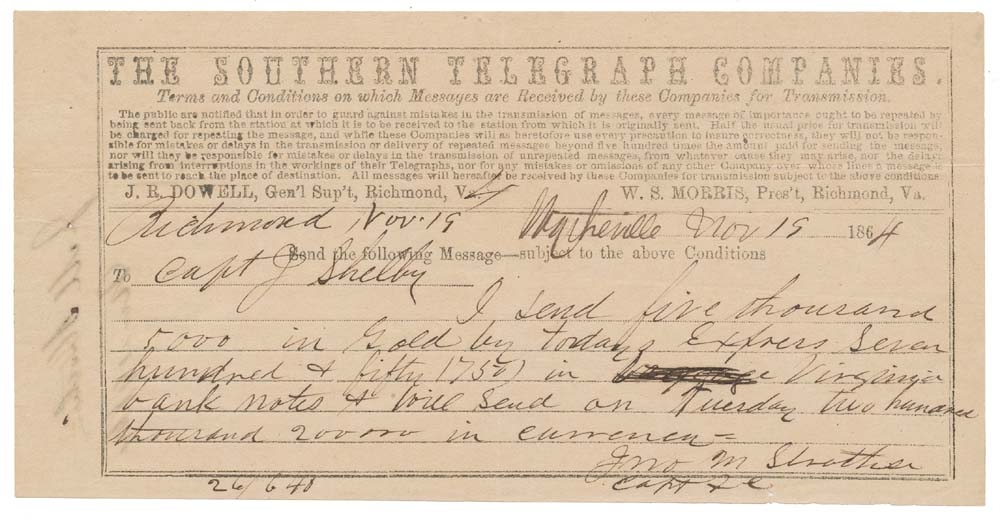 THE SOUTHERN TELEGRAPH COMPANIES.
Terms and Conditions on which Messages are Received by these Companies for Transmission.
The public are notified that in order to guard against mistakes in the transmission of messages, every message of importance ought to be repeated by
being sent back from the station at which it is to be received to the station from which it is originally sent. Half the usual price for transmission will
be charged for repeating the message, and while these Companies will as heretofore use every precaution to insure correctness, they will not be respon-
sible for mistakes or delays in the transmission or delivery of repeated messages beyond five hundred times the amount paid for sending the message,
nor will they be responsible for mistakes or delays in the transmission of unrepeated messages, from whatever cause they may arise, nor for delays
arising from interruptions in the workings of their Telegraphs, nor for any mistakes or omissions of any other Company over whose lines a message is
to be sent to reach the place of destination. All messages will hereafter be received by these Companies for transmission subject to the above conditions
J. R. DOWELL, Gen'l Sup't, Richmond, Va. W. S. MORRIS, Pres't, Richmond, Va.
Richmond, Nov. 19 Wytheville Nov 19 1864
Send the following Message—subject to the above Conditions
To Capt J Shelby
I send five thousand
5000 in Gold by todays Express Seven
hundred & fifty (750) in Virginia
bank notes & will send on Tuesday two hundred
thousand 200000 in currency =
Jno M Strother
Capt &c
26/6 40